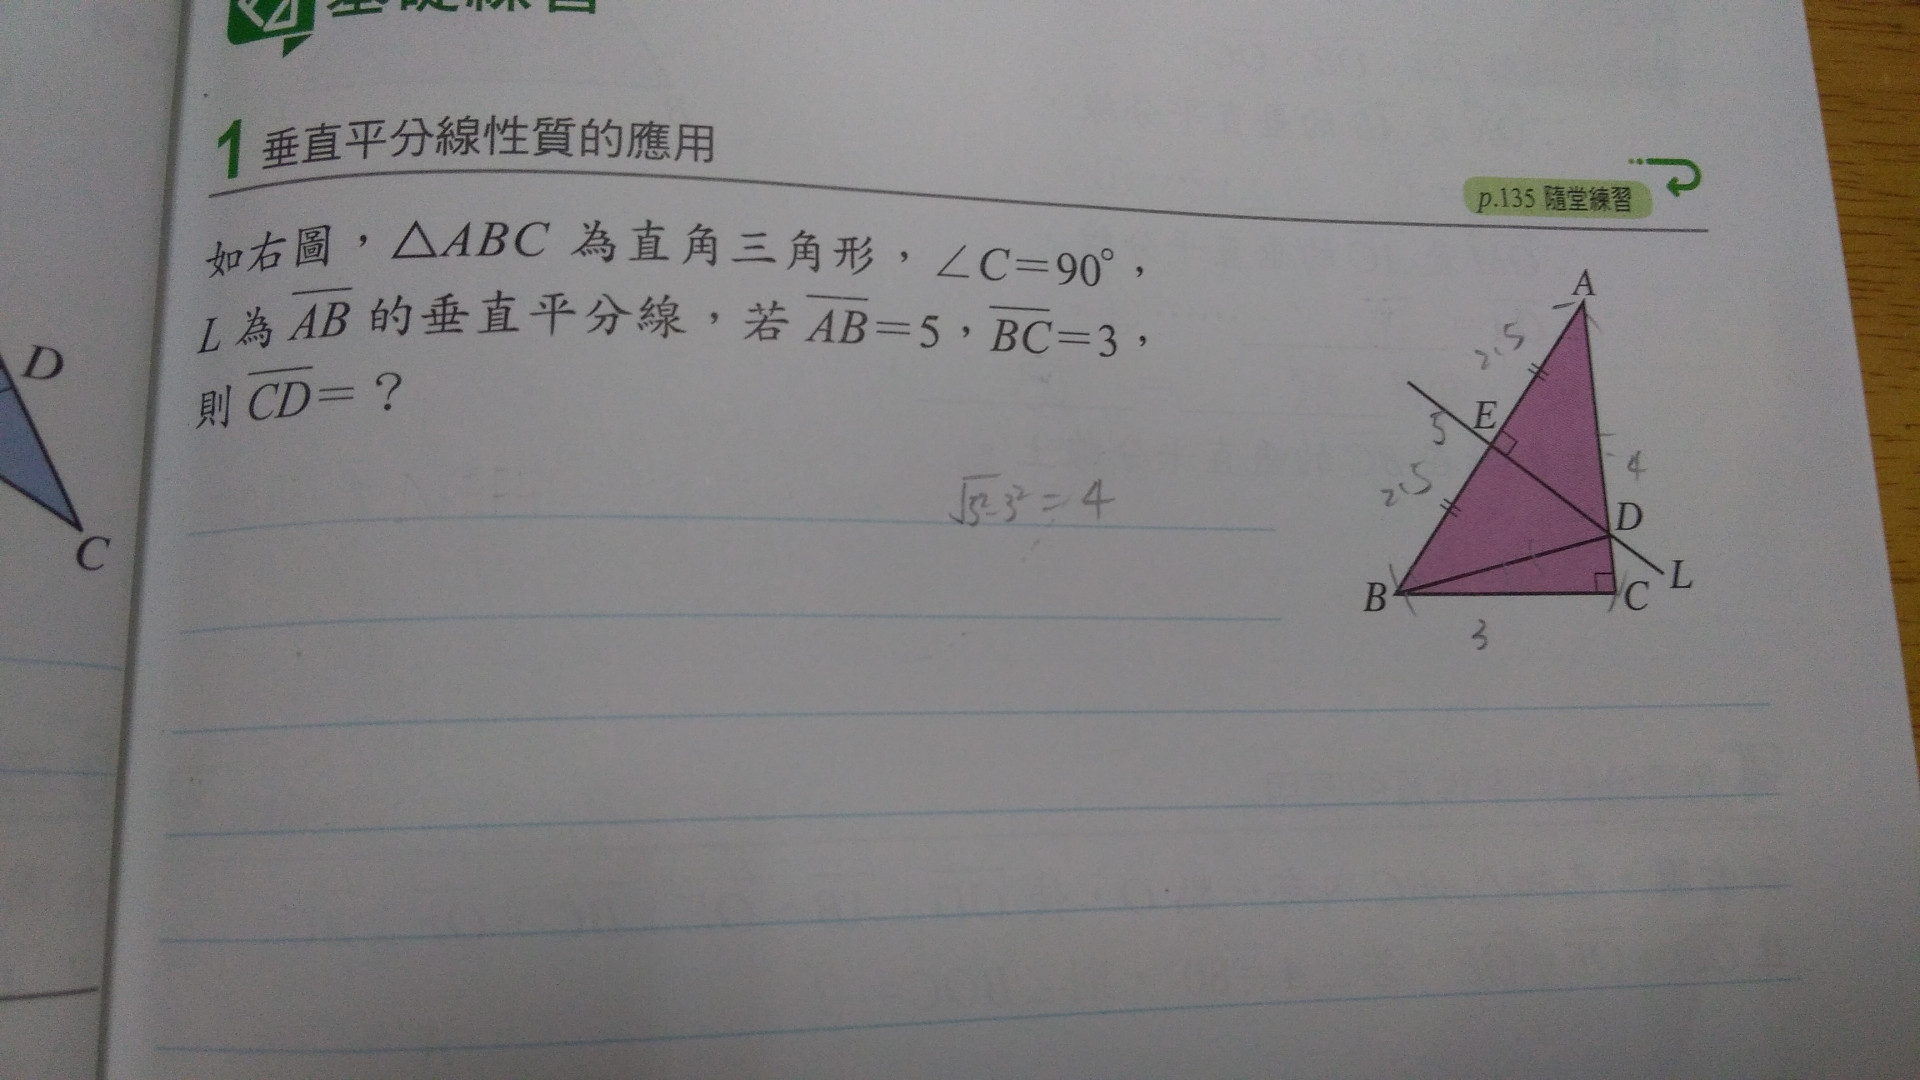 基礎練習
1 垂直平分線性質的應用
p.135 隨堂練習
如右圖，△ABC 為直角三角形，∠C=90°，
L 為 AB 的垂直平分線，若 AB=5，BC=3，
則 CD=？
√5²-3² = 4
A
2.5
E
5
4
2.5
D
L
B
C
3
D
C